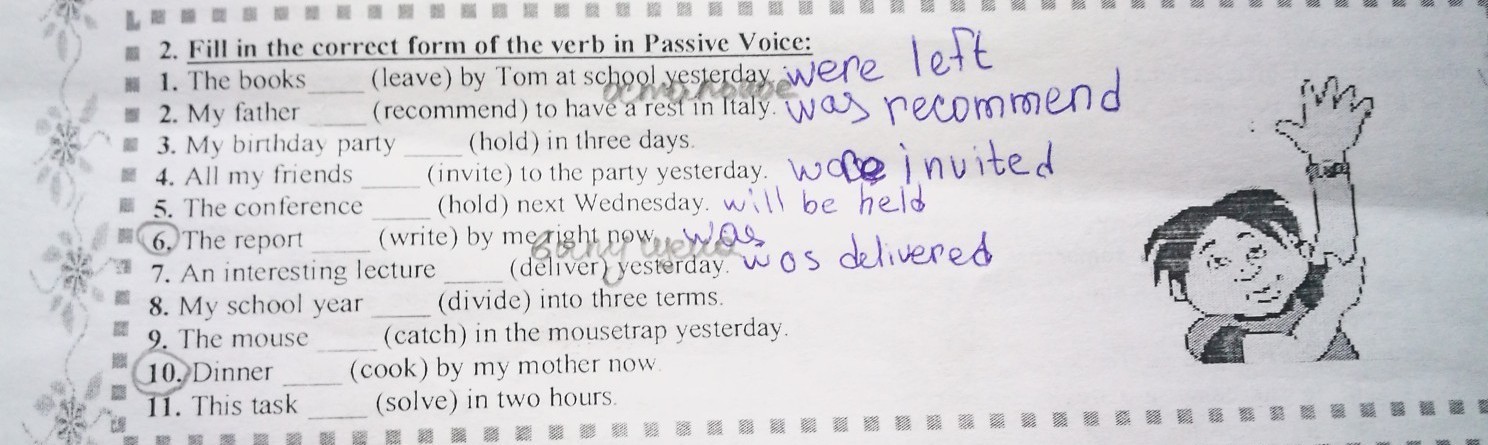 2. Fill in the correct form of the verb in Passive Voice:
1. The books____ (leave) by Tom at school yesterday. were left
2. My father ____ (recommend) to have a rest in Italy. was recommend
3. My birthday party ____ (hold) in three days.
4. All my friends ____ (invite) to the party yesterday. were invited
5. The conference ____ (hold) next Wednesday. will be held
6. The report ____ (write) by me right now. was
7. An interesting lecture ____ (deliver) yesterday. was delivered
8. My school year ____ (divide) into three terms.
9. The mouse ____ (catch) in the mousetrap yesterday.
10. Dinner ____ (cook) by my mother now.
11. This task ____ (solve) in two hours.